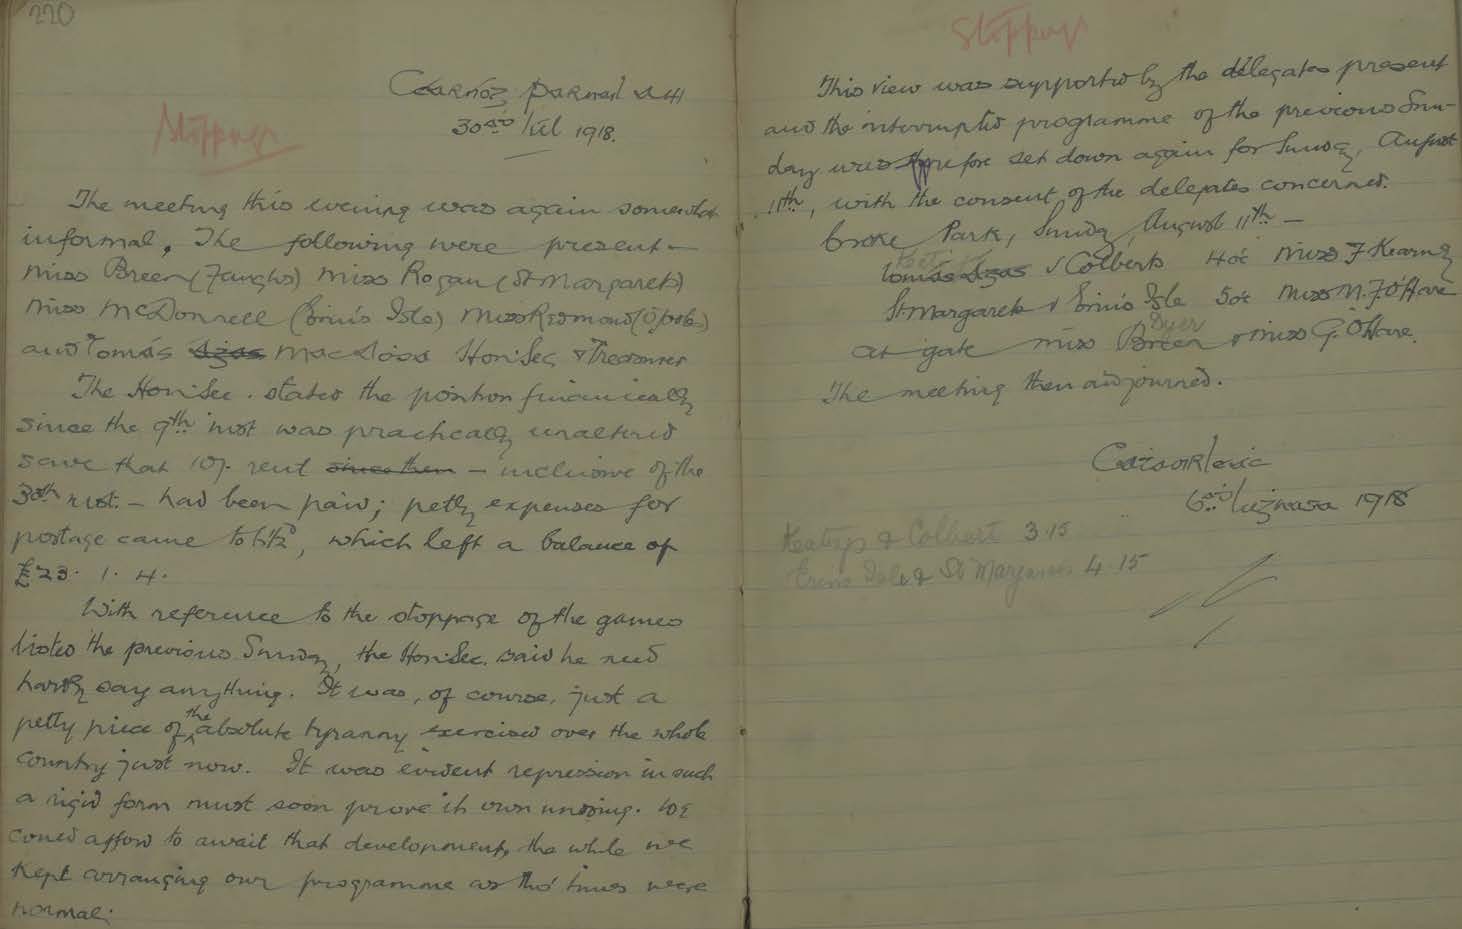 220
Stoppage
Cearnóg Parnell 41
30adh Iúl 1918.
The meeting this evening was again somewhat
informal. The following were present —
Miss Breen (Fainghs) Miss Rogan (St Margarets)
Miss McDonnell (Erin's Isle) Miss Redmond (O'Tooles)
and Tomás Mac Aodha Hon: Sec & Treasurer
The Hon: Sec. stated the position financially
since the 9th inst was practically unaltered
save that 10/- rent since then — inclusive of the
30th inst. — had been paid; petty expenses for
postage came to , which left a balance of
£23. 1. 4.
With reference to the stoppage of the games
listed the previous Sunday, the Hon: Sec. said he need
hardly say anything. It was, of course, just a
petty piece of the absolute tyranny exercised over the whole
country just now. It was evident repression in such
a rigid form must soon prove its own undoing. We
could afford to await that development, the while we
kept arranging our programme as tho' times were
normal.
Stoppage
This view was supported by the delegates present
and the interrupted programme of the previous Sun-
day was therefore set down again for Sunday, August
11th, with the consent of the delegates concerned.
Croke Park, Sunday, August 11th —
v Colberts 4 oc Miss F Kearney
St Margarets v Erin's Isle 5 oc Miss M. F O'Hare
at gate Miss Breen Dyer & Miss G. O'Hare.
The meeting then adjourned.
Cathaoirleach
6adh Lughnasa 1918
Keatings & Colbert 3.15
Erins Isle & St Margarets 4.15